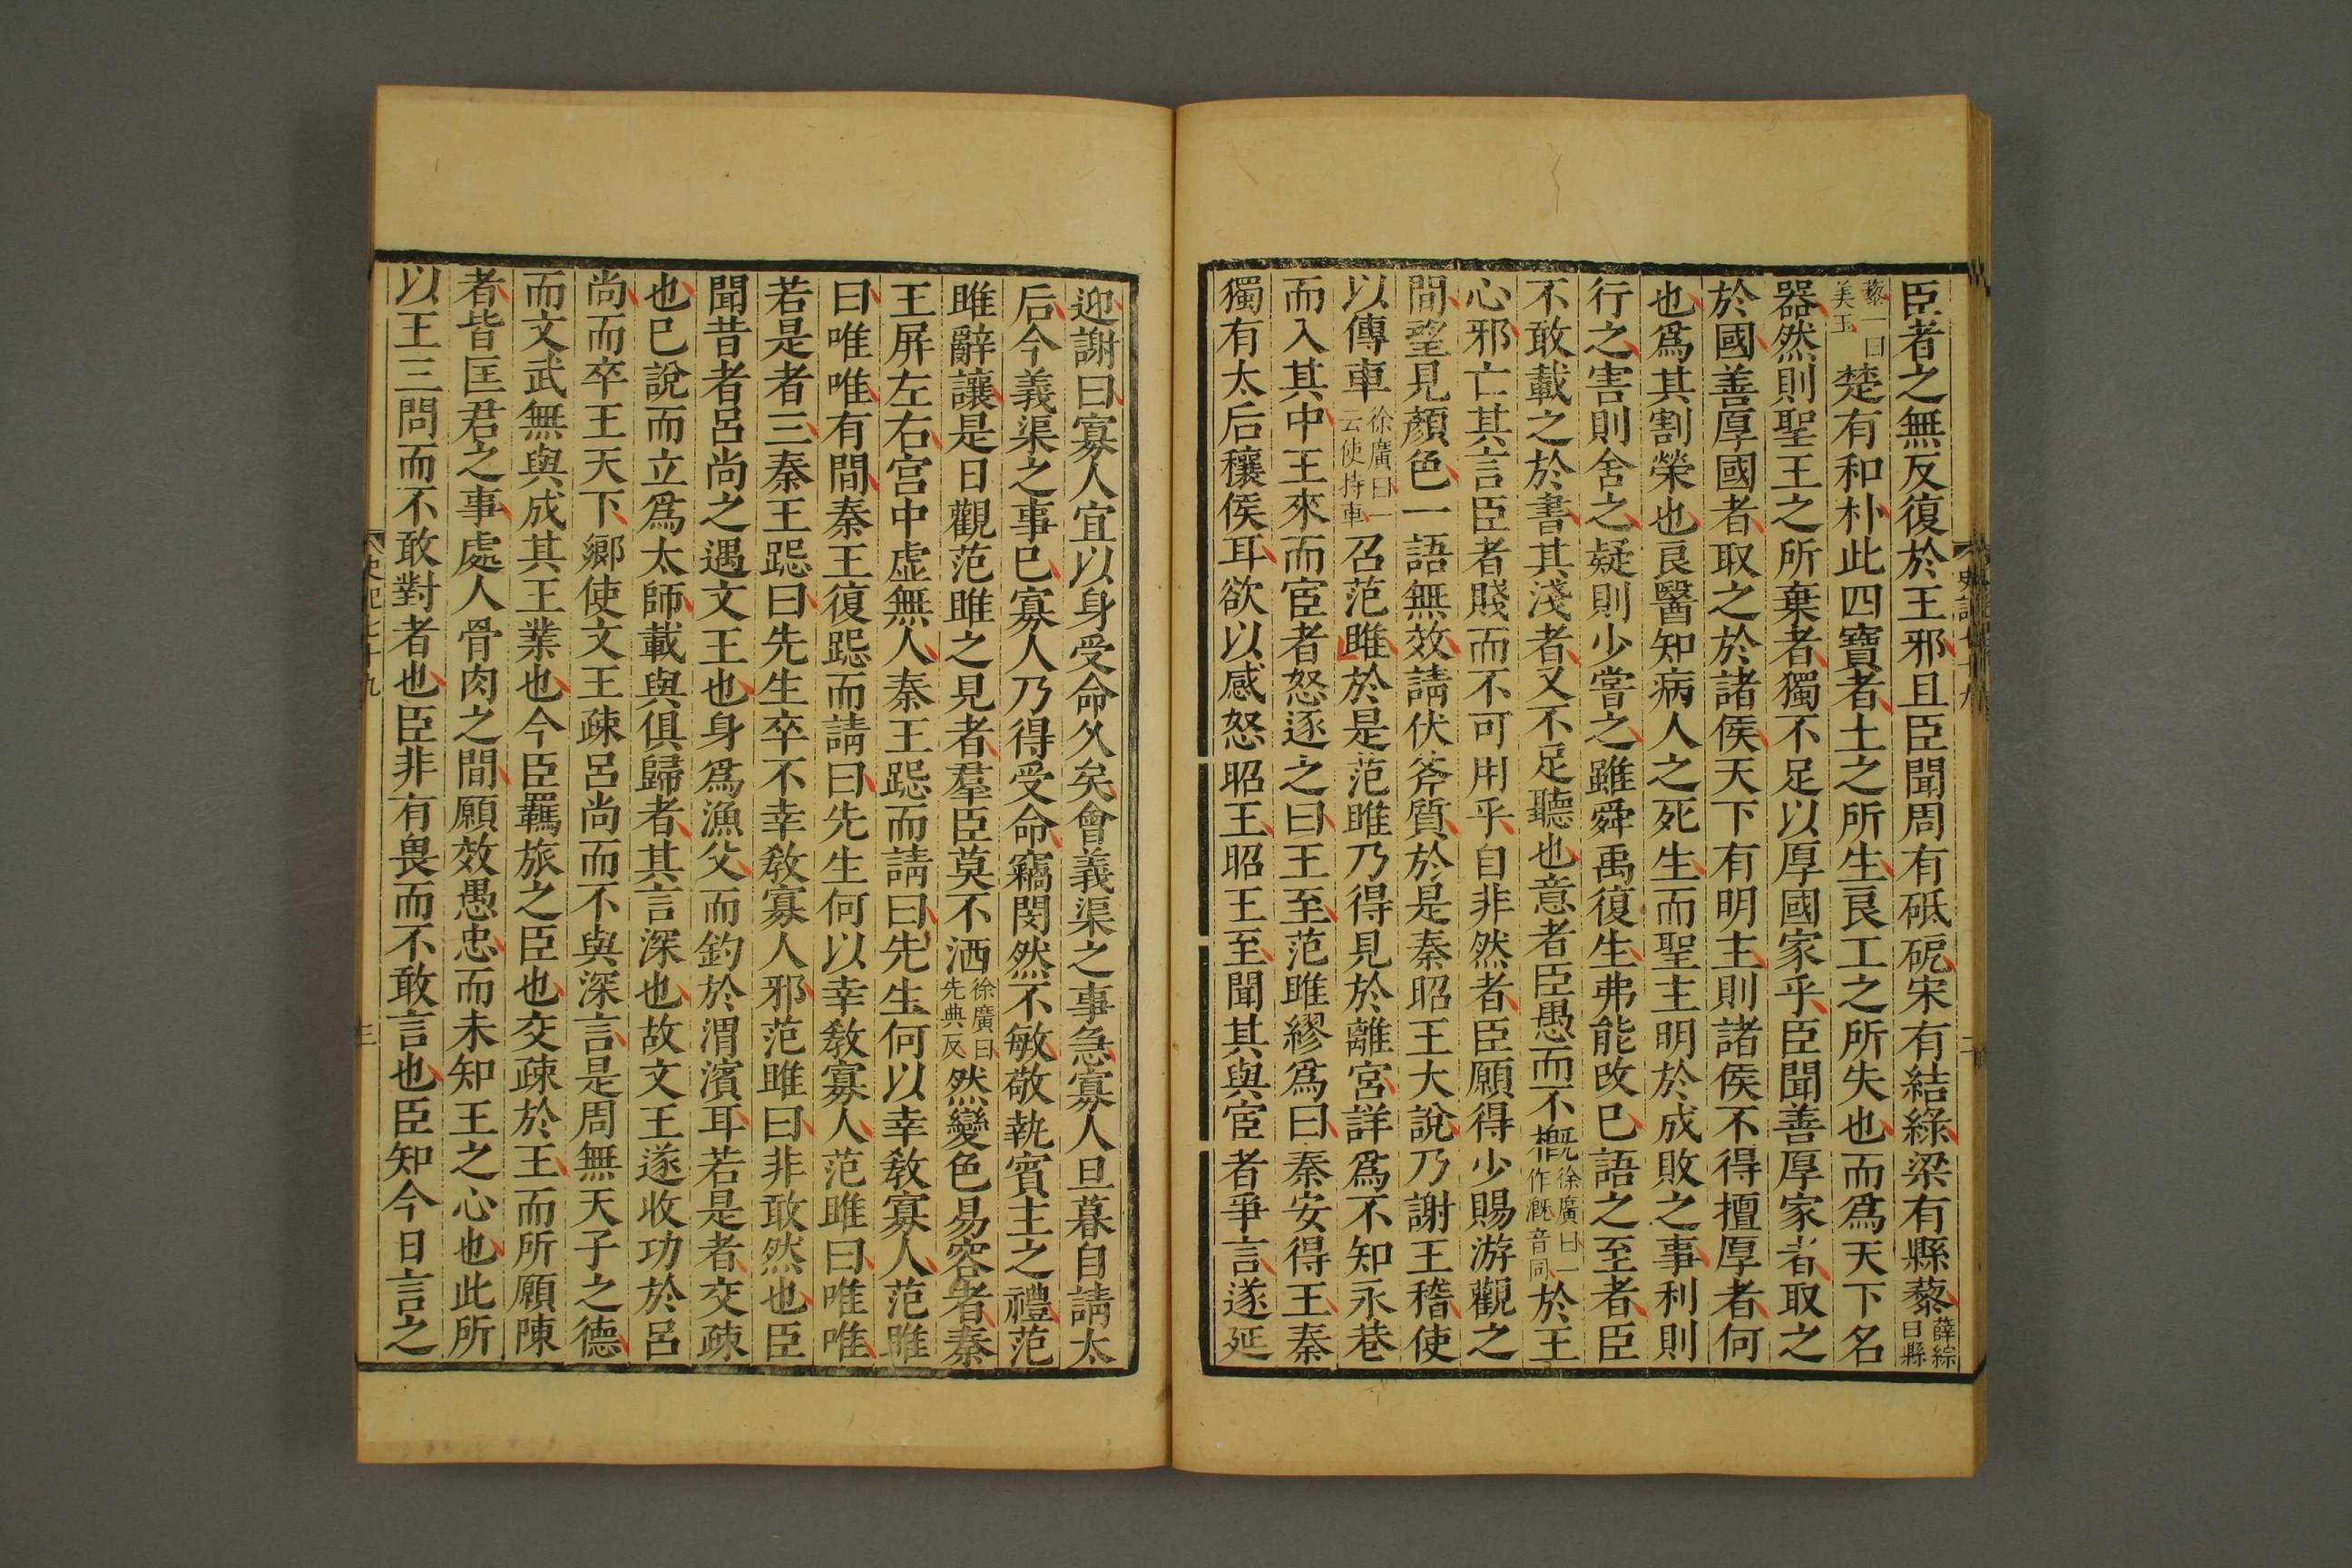 臣者之無反復於王邪且臣聞周有砥砨宋有結綠梁有縣藜薛綜曰縣
藜一曰美玉楚有和朴此四寶者土之所生良工之所失也而爲天下名
器然則聖王之所棄者獨不足以厚國家乎臣聞善厚家者取之
於國善厚國者取之於諸侯天下有明主則諸侯不得擅厚者何
也爲其割榮也良醫知病人之死生而聖主明於成敗之事利則
行之害則舍之疑則少嘗之雖舜禹復生弗能改已語之至者臣
不敢載之於書其淺者又不足聽也意者臣愚而不概徐廣曰一作溉音同於王
心邪亡其言臣者賤而不可用乎自非然者臣願得少賜游觀之
間望見顏色一語無效請伏斧質於是秦昭王大說乃謝王稽使
以傳車徐廣曰一云使持車召范雎於是范雎乃得見於離宮詳爲不知永巷
而入其中王來而宦者怒逐之曰王至范雎繆爲曰秦安得王秦
獨有太后穰侯耳欲以感怒昭王昭王至聞其與宦者爭言遂延
史記七十九
二
迎謝曰寡人宜以身受命久矣會義渠之事急寡人旦暮自請太
后今義渠之事已寡人乃得受命竊閔然不敏敬執賓主之禮范
雎辭讓是日觀范雎之見者羣臣莫不洒徐廣曰先典反然變色易容者秦
王屏左右宮中虛無人秦王跽而請曰先生何以幸敎寡人范雎
曰唯唯有間秦王復跽而請曰先生何以幸敎寡人范雎曰唯唯
若是者三秦王跽曰先生卒不幸敎寡人邪范雎曰非敢然也臣
聞昔者呂尚之遇文王也身爲漁父而釣於渭濱耳若是者交疎
也已說而立爲太師載與俱歸者其言深也故文王遂收功於呂
尚而卒王天下鄉使文王疎呂尚而不與深言是周無天子之德
而文武無與成其王業也今臣羈旅之臣也交疎於王而所願陳
者皆匡君之事處人骨肉之間願效愚忠而未知王之心也此所
以王三問而不敢對者也臣非有畏而不敢言也臣知今日言之
史記七十九
三